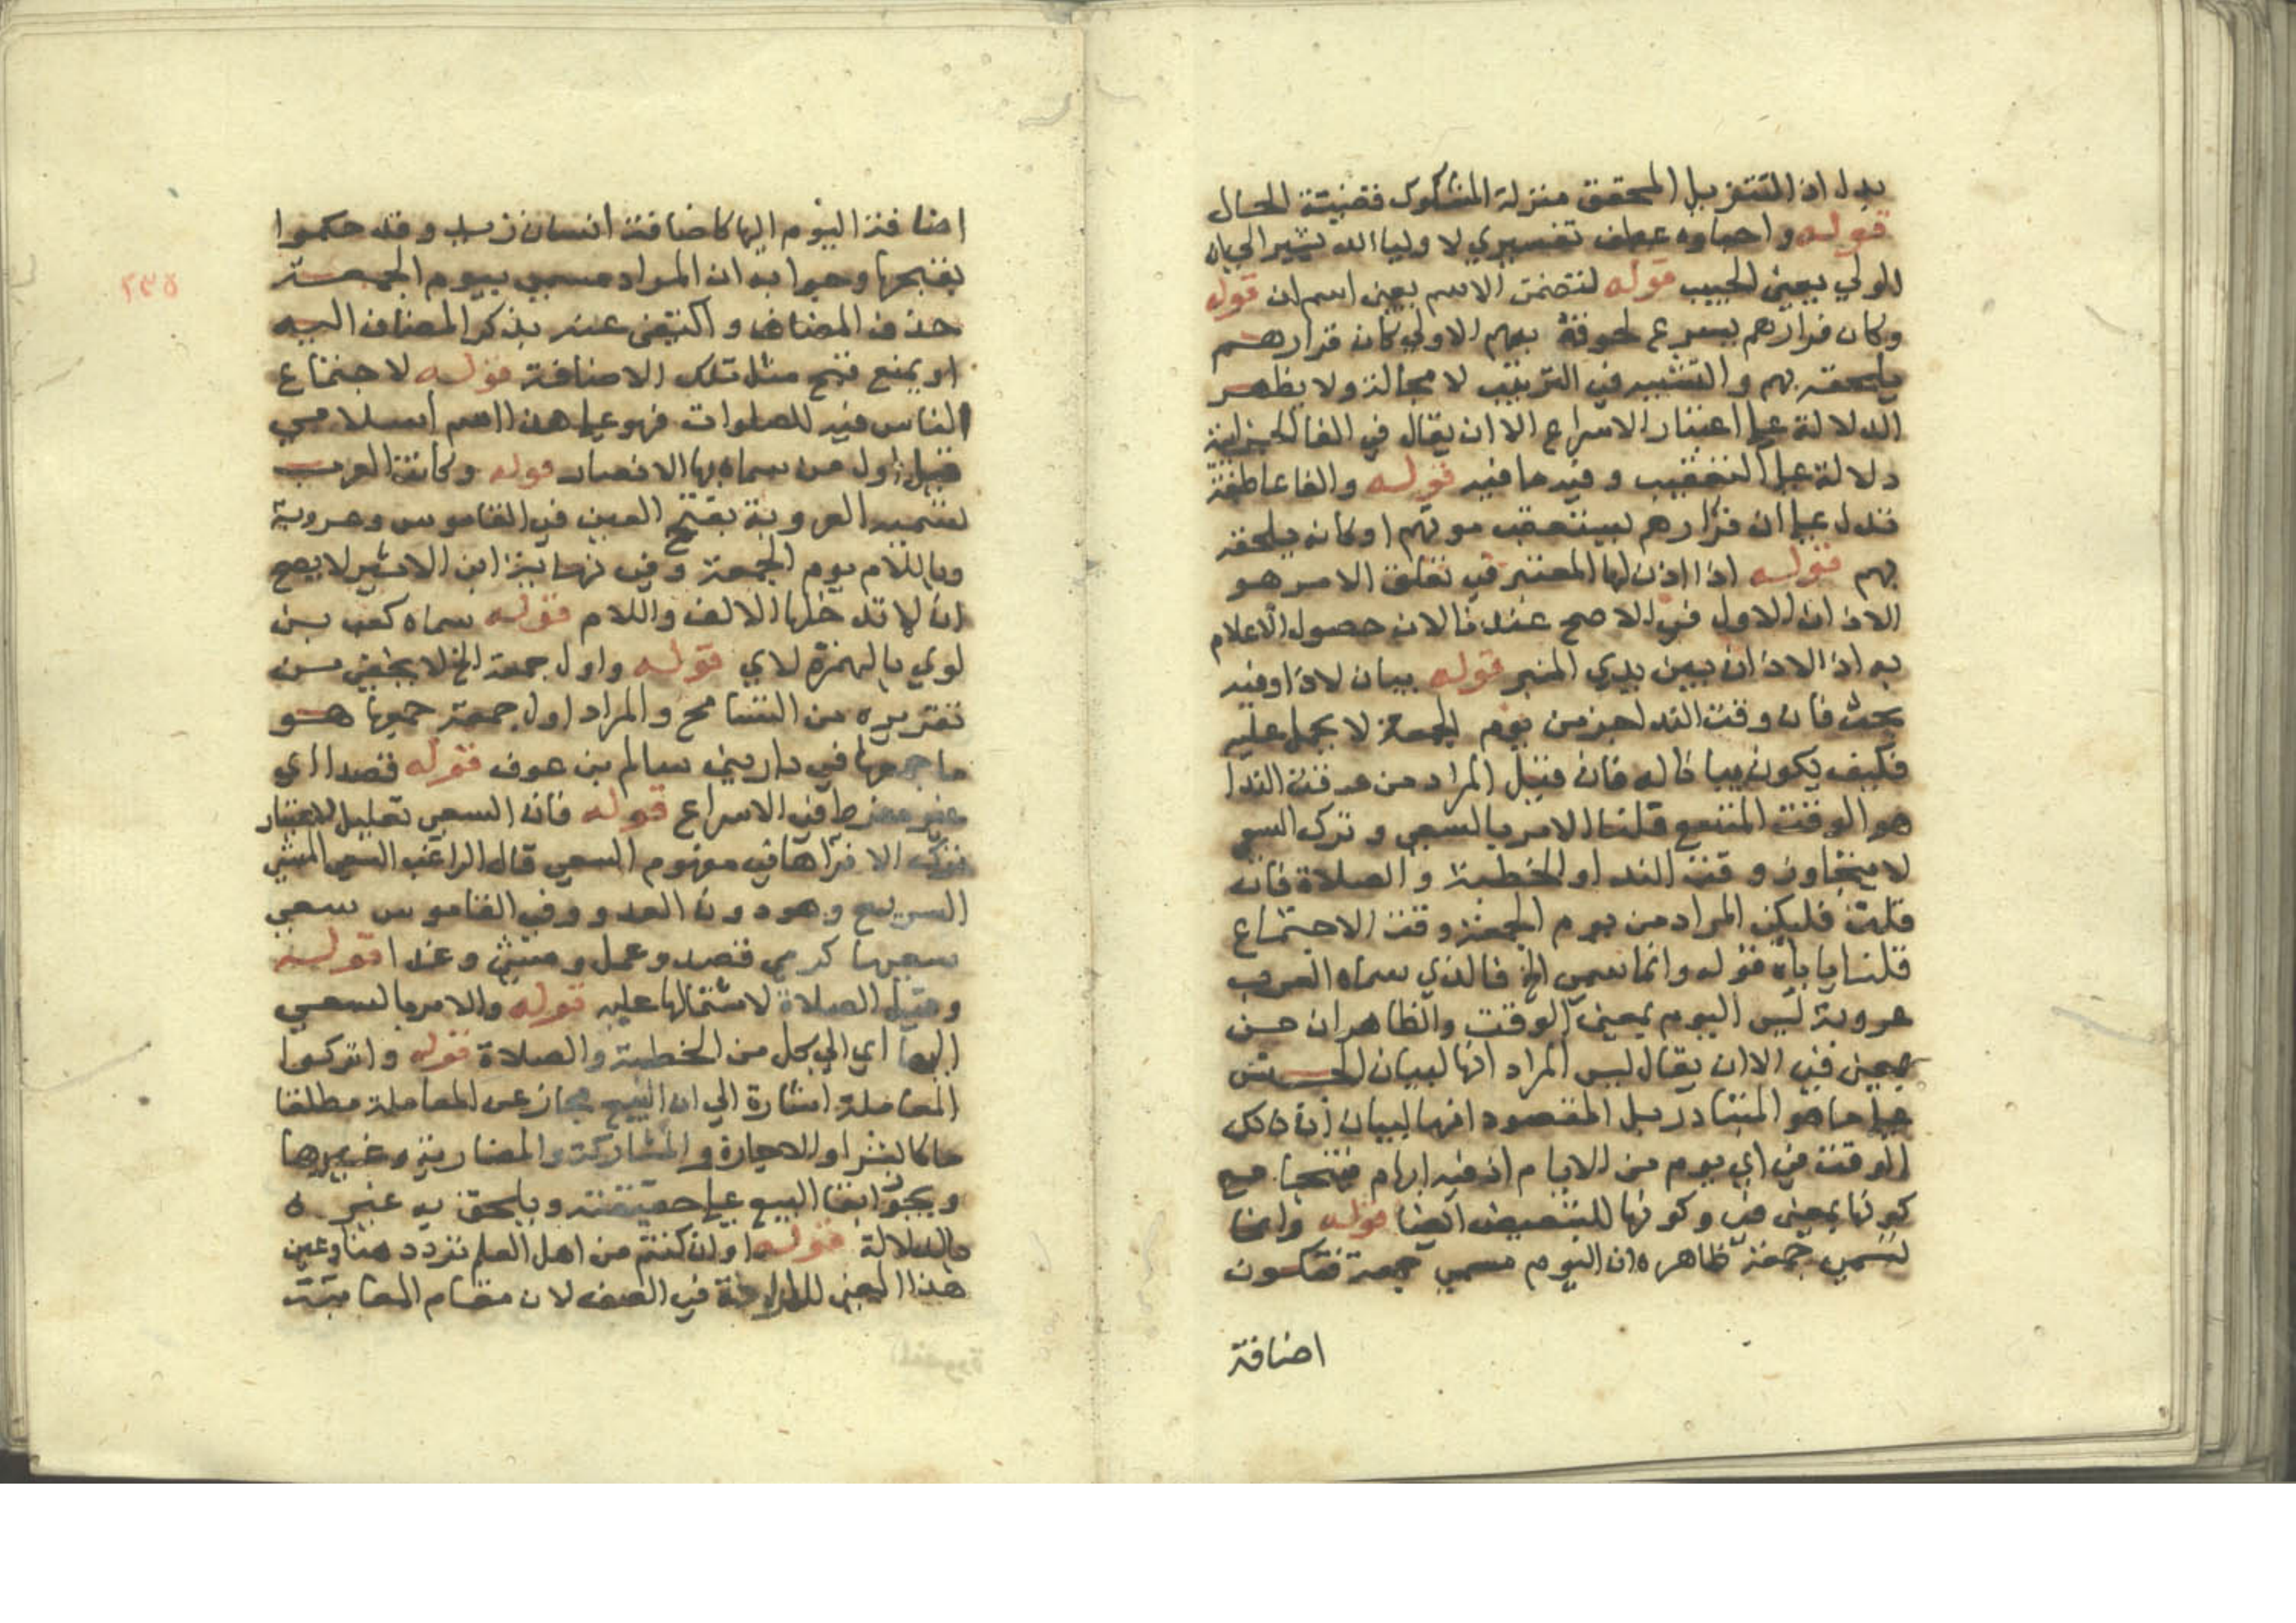 بدل اذ التنزيل المحقق منزلة المشكوك فقضيته الحال
قوله واحباوه عطف تفسيري لا وليا الله يشير الي ان
الولي بمعني الحبيب قوله لتضمن الاسم يعني اسم ان قوله
وكان فرارهم يسرع لحوقه بهم الاولي كان فرارهم
يلحقه بهم والتشبيه في الترتيب لا محالة ولا يظهر
الدلالة علي اعتبار الاسراع الا ان يقال في الفا الجزايية
دلالة علي التعقيب وفيه ما فيه قوله والفا عاطفة
تدل علي ان فرارهم يستعقب موتهم او كانه يلحقه
بهم قوله اذا اذن لها المعتبر في تعلق الامر هو
الاذان الاول في الاصح عندنا لان حصول الاعلام
به اذ الاذان بين يدي المنبر قوله بيان لاذا وفيه
بحث فان وقت الندا جزمن يوم الجمعة لا يحمل عليه
فكيف يكون بيانا له فان قيل المراد من وقت الندا
هو الوقت المتسع قلنا الامر بالسعي وترك السعي
لا يتجاوز وقت الندا والخطبة والصلاة فان
قلت فليكن المراد من يوم الجمعة وقت الاجتماع
قلنا ياباه قوله وانما سمي الخ فالذي سماه العرب
عروبة ليس اليوم بمعني الوقت والظاهر ان من
بمعني في الا ان يقال ليس المراد انها لبيان الجنس
علي ما هو المتبادر بل المقصود انها لبيان ان ذلك
الوقت في اي يوم من الايام اذ فيه ابهام فتجا مع
كونها بمعني في وكونها للتبعيض ايضا قوله وانما
تسمي جمعة ظاهره ان اليوم مسمي جمعة فتكون
اضافة
اضافة اليوم اليها كاضافة انسان زيد وقد حكموا
بقبحها وجوابه ان المراد مسمي بيوم الجمعة
حذف المضاف واكتفي عنه بذكر المضاف اليه
او يمنع قبح مثل تلك الاضافة قوله لاجتماع
الناس فيه للصلوات فهو علي هذا اسم اسلامي
قيل اول من سماه بها الانصار قوله وكانت العرب
تسميه العروبة بفتح العين في القاموس وعروبة
وباللام يوم الجمعة وفي نهاية ابن الاثير لا يصح
ان لا تدخلها الالف واللام قوله سماه كعب بن
لوي بالهمزة لاي قوله واول جمعة الخ لا يخفي من
تقريره من التسامح والمراد اول جمعة جمعها هو
ما جمعها في دار بني سالم بن عوف قوله قصدا اي
غير مفرط في الاسراع قوله فان السعي تعليل لاعتبار
ترك الافراط في مفهوم السعي قال الراغب السعي المشي
السريع وهو دون العدو وفي القاموس سعي
سعيها كرمي قصد وعمل ومشي وعدا قوله
وقيل الصلاة لاشتمالها عليه قوله والامر بالسعي
اليها اي الي كل من الخطبة والصلاة قوله واتركوا
المعاملة اشارة الي ان البيع مجاز عن المعاملة مطلقا
ما كالشرا والاجارة والمشاركة والمضاربة وغيرها
ويجوز ابقا البيع علي حقيقته ويلحق به غيره
بالدلالة قوله اوان كنتم من اهل العلم تردد هنا وعين
هذا المعني في الصف لان مقام المعاتبة
٢٣٥